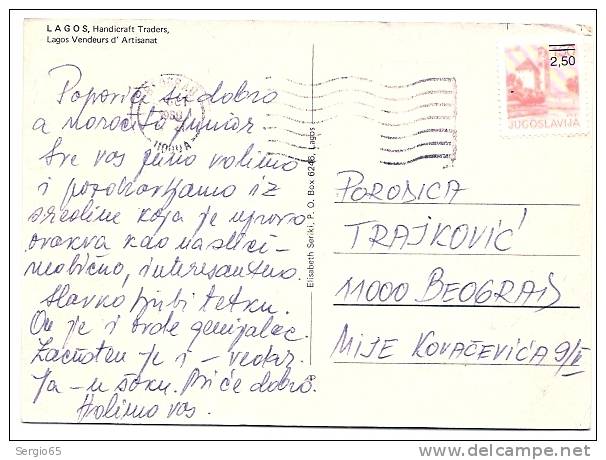 LAGOS, Handicraft Traders,
Lagos Vendeurs d' Artisanat
2,50
JUGOSLAVIJA
Popovići su dobro
a naročito junior.
Sve vas puno volimo
i pozdravljamo iz
sredine koja je upravo
ovakva kao na slici -
neobično, interesantno.
Slavko ljubi tetku.
On je i ovde genijalac.
Začuđen je i - vedar.
Ja - u šoku. Biće dobro.
Volimo vas.
Elisabeth Seriki, P. O. Box 6246, Lagos
PORODICA
TRAJKOVIĆ
11000 BEOGRAD
MIJE KOVAČEVIĆA 9/II
Sergio65
delcampe.net